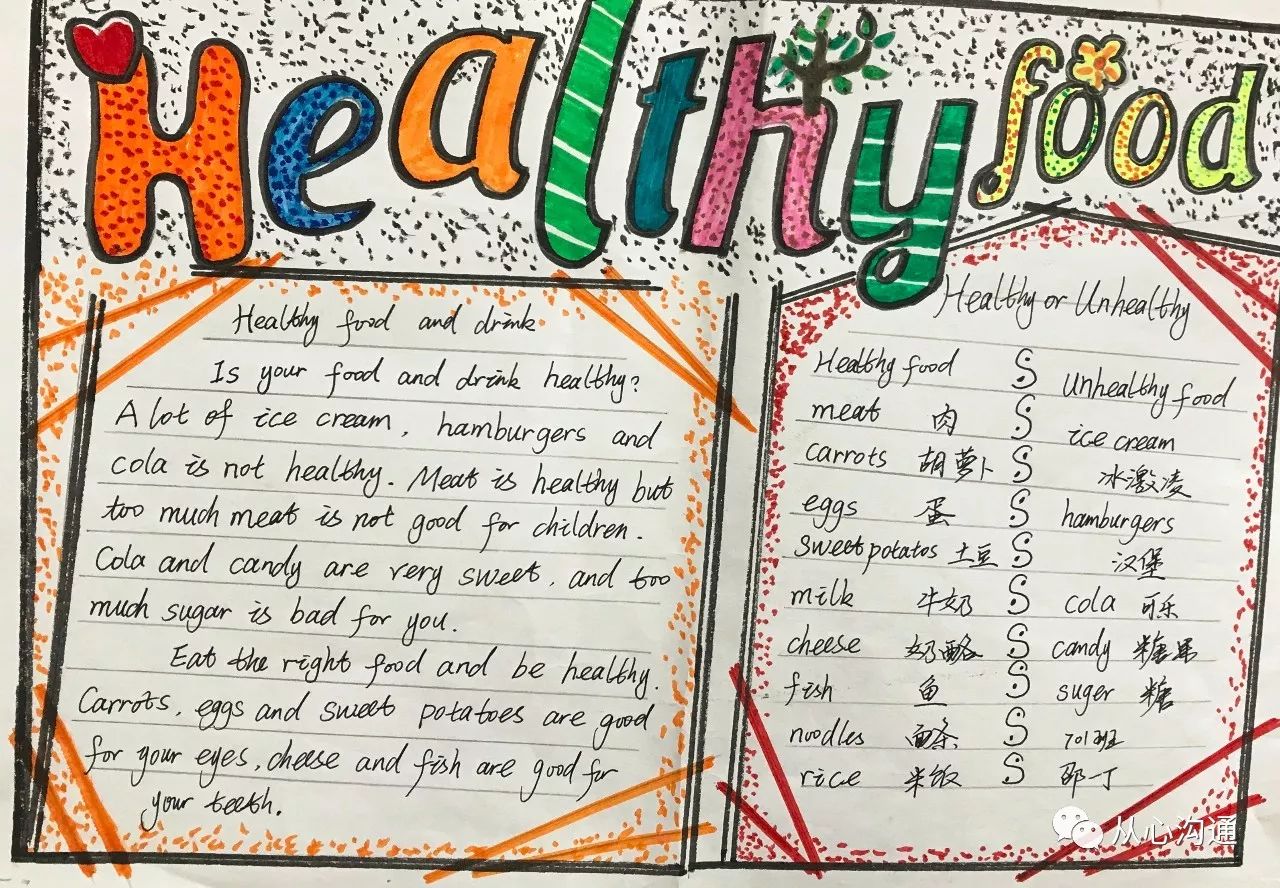 Healthy food
Healthy food and drink
Is your food and drink healthy?
A lot of ice cream, hamburgers and
cola is not healthy. Meat is healthy but
too much meat is not good for children.
Cola and candy are very sweet, and too
much sugar is bad for you.
Eat the right food and be healthy.
Carrots, eggs and sweet potatoes are good
for your eyes, cheese and fish are good for
your teeth.
Healthy or Unhealthy
Healthy food S Unhealthy food
meat 肉 S ice cream
carrots 胡萝卜 S 冰激凌
eggs 蛋 S hamburgers
sweet potatos 土豆 S 汉堡
milk 牛奶 S cola 可乐
cheese 奶酪 S candy 糖果
fish 鱼 S suger 糖
noodles 面条 S 701班
rice 米饭 S 邵一丁
从心沟通